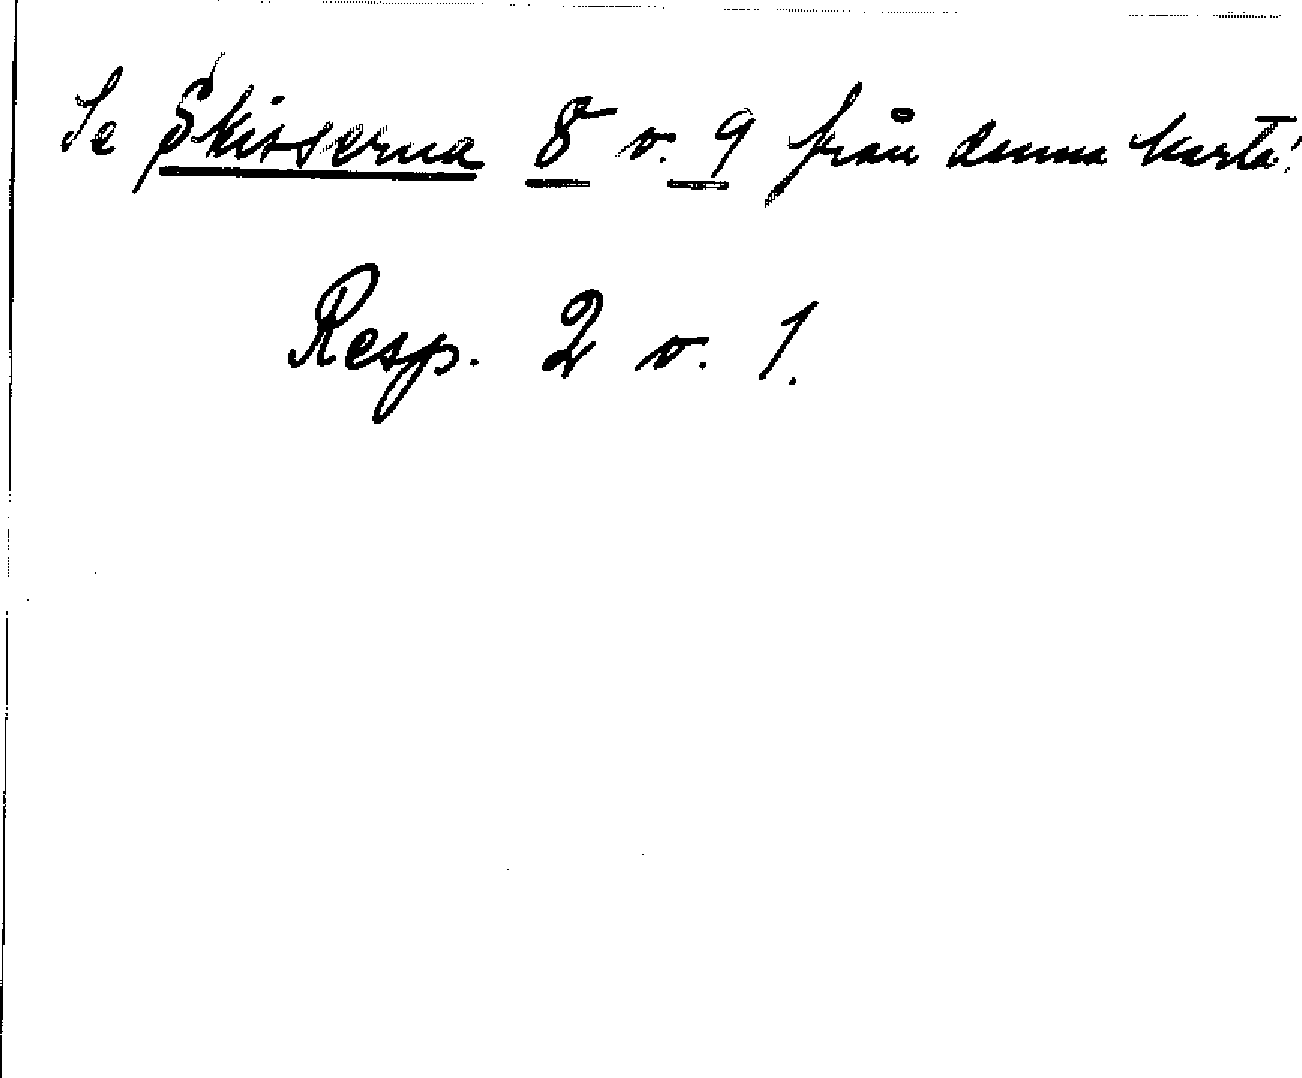 Se Skisserna 8 o. 9 från denna karta!
Resp. 2 o. 1.